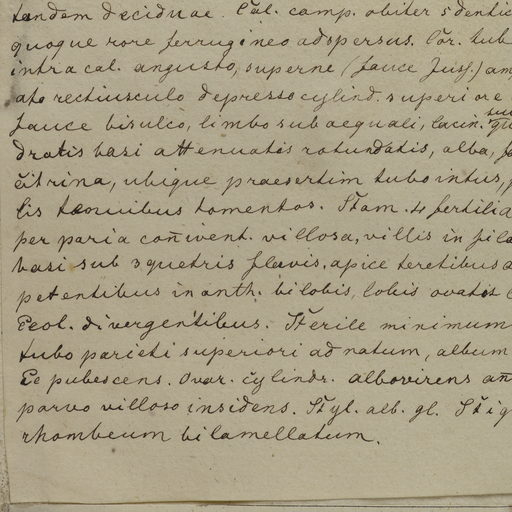 tandem deciduae. Cal. camp. obiter 5 dentic
quoque rore ferrugineo adspersus. Cor. tub
intra cal. angusto, superne (fauce Juss.) am
ato rectiusculo depresso cylind. superiore
fauce bisulco, limbo subaequali, lacin.
dratis basi attenuatis rotundatis, alba,
citrina, ubique praesertim tubo intus,
lis tenuibus tomentos. Stam. 4 fertilia
per paria coñivent. villosa, villis in fila
basi sub 3quetris flavis, apice teretibus a
petentibus in anth. bilobis, lobis ovatis
divergentibus. Sterile minimum
tubo parieti superiori adnatum, album
pubescens. Ovar. cylindr. albovirens
parvo villoso insidens. Styl. alb. gl. Stig
rhombeum bilamellatum.